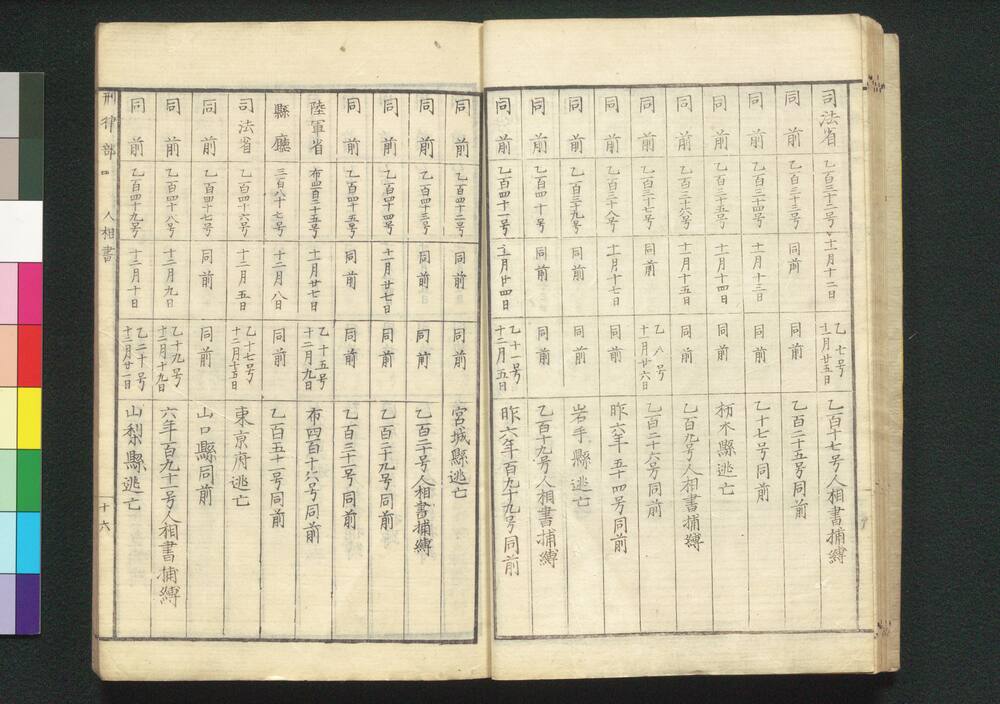 司法省 乙百三十二号 十一月十二日 乙七号 十一月廿五日 乙百十七号人相書捕縛
同前 乙百三十三号 同前 同前 乙百二十五号同前
同前 乙百三十四号 十一月十三日 同前 乙十七号同前
同前 乙百三十五号 十一月十四日 同前 栃木縣逃亡
同前 乙百三十六号 十一月十五日 同前 乙百九号人相書捕縛
同前 乙百三十七号 同前 乙八号 十一月廿六日 乙百二十六号同前
同前 乙百三十八号 十一月十七日 同前 昨六年五十四号同前
同前 乙百三十九号 同前 同前 岩手縣逃亡
同前 乙百四十号 同前 同前 乙百十九号人相書捕縛
同前 乙百四十一号 十一月廿四日 乙十一号 十二月五日 昨六年百九十九号同前
同前 乙百四十二号 同前 同前 宮城縣逃亡
同前 乙百四十三号 同前 同前 乙百二十号人相書捕縛
同前 乙百四十四号 十一月廿七日 同前 乙百二十九号同前
同前 乙百四十五号 同前 同前 乙百三十一号同前
陸軍省 布四百二十五号 十一月廿七日 乙十五号 十二月九日 布四百十六号同前
縣廳 三百八十七号 十二月八日 同前 乙百五十一号同前
司法省 乙百四十六号 十二月五日 乙十七号 十二月十五日 東京府逃亡
同前 乙百四十七号 同前 同前 山口縣同前
同前 乙百四十八号 十二月九日 乙十九号 十二月十九日 六年百九十一号人相書捕縛
同前 乙百四十九号 十二月十日 乙二十号 十二月廿一日 山梨縣逃亡
刑律部四 人相書 十六